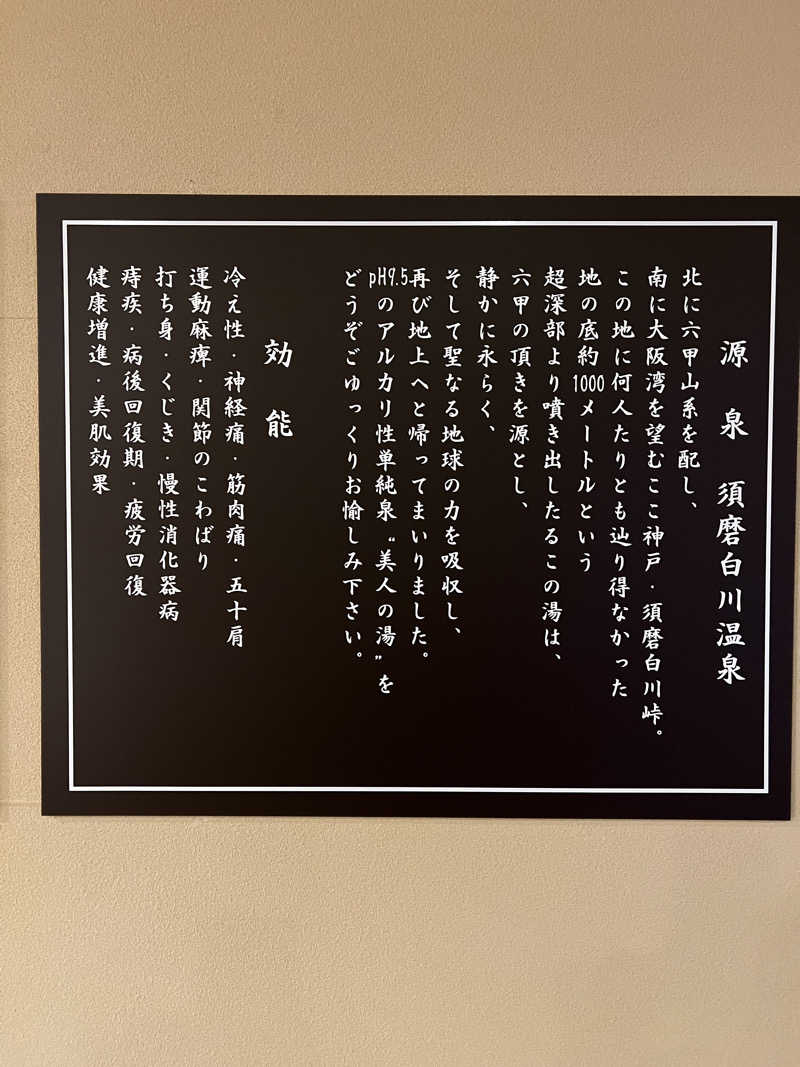 源泉 須磨白川温泉
北に六甲山系を配し、
南に大阪湾を望むここ神戸・須磨白川峠。
この地に何人たりとも辿り得なかった
地の底約1000メートルという
超深部より噴き出したるこの湯は、
六甲の頂きを源とし、
静かに永らく、
そして聖なる地球の力を吸収し、
再び地上へと帰ってまいりました。
pH9.5のアルカリ性単純泉〝美人の湯〟を
どうぞごゆっくりお愉しみ下さい。
効能
冷え性・神経痛・筋肉痛・五十肩
運動麻痺・関節のこわばり
打ち身・くじき・慢性消化器病
痔疾・病後回復期・疲労回復
健康増進・美肌効果